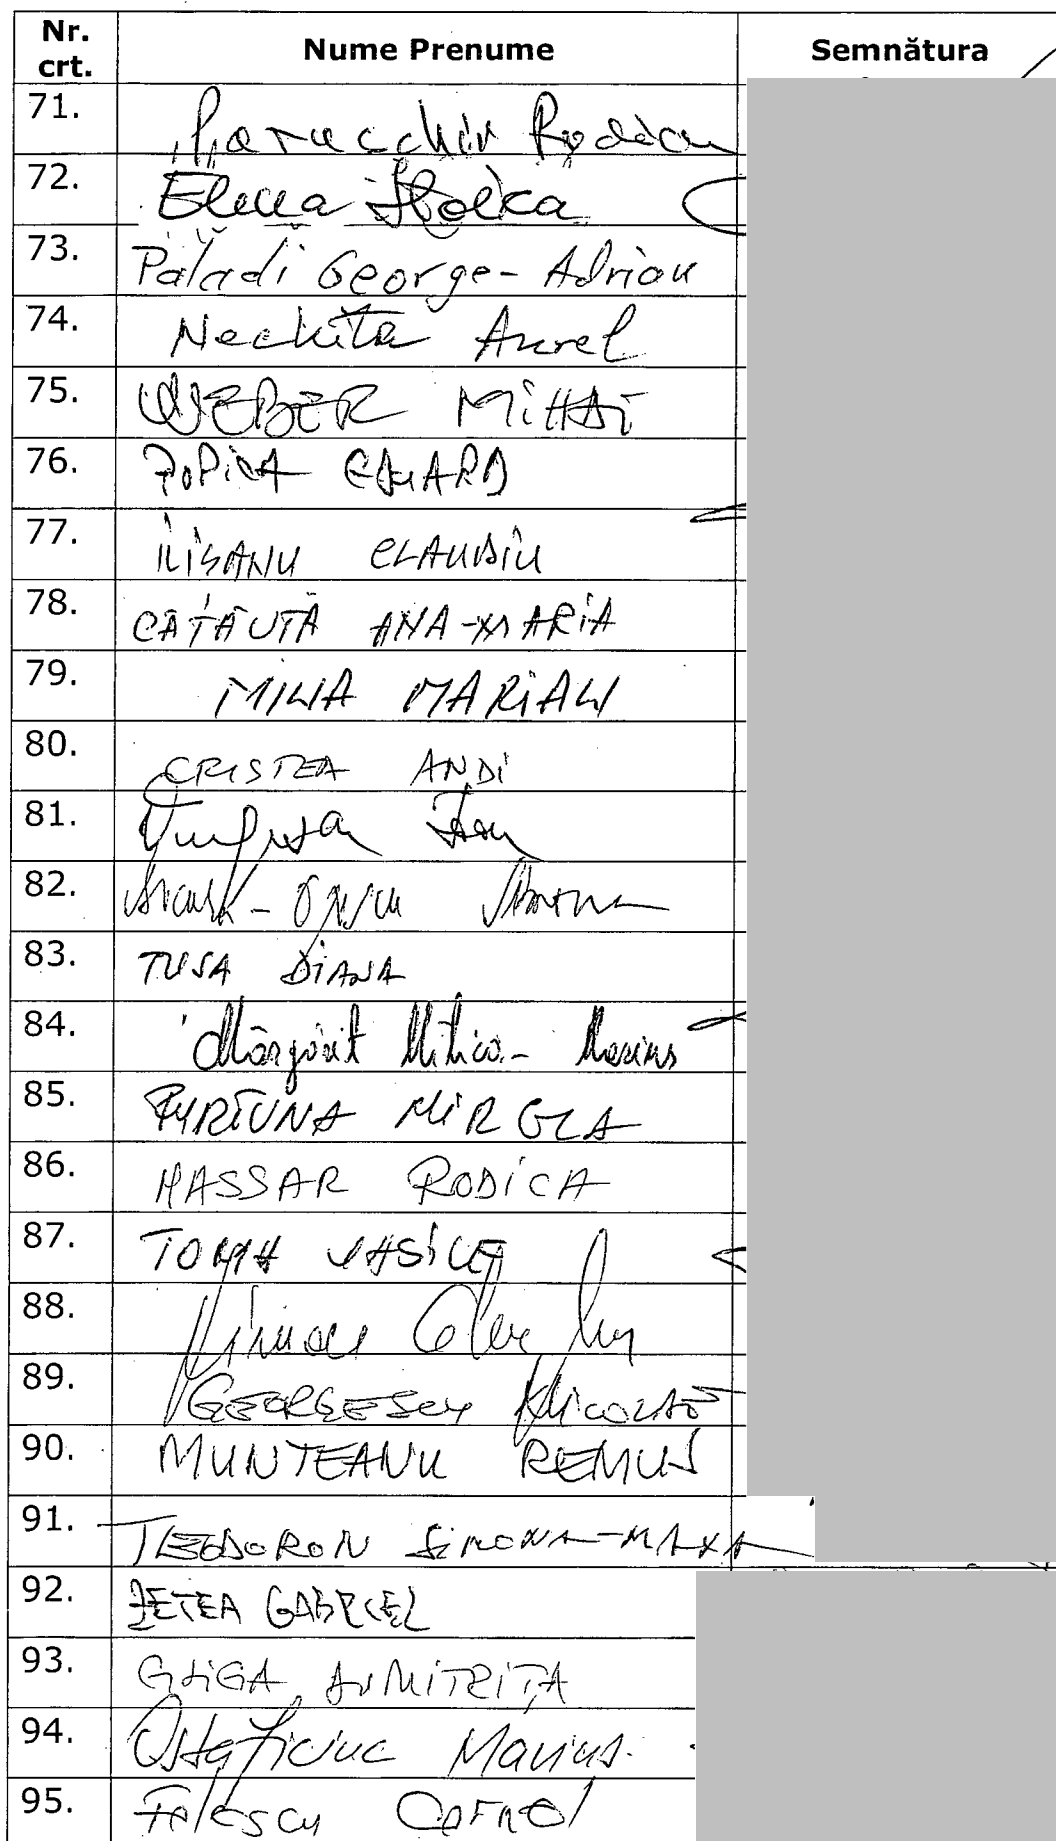 Nr. crt. Nume Prenume Semnătura
71. Paraschiv Rodica
72. Elena Stoica
73. Paladi George-Adrian
74. Nechita Aurel
75. WEBER MIHAI
76. POPICA EDUARD
77. ILIȘANU CLAUDIU
78. CĂTĂUȚĂ ANA-MARIA
79. MINA MARIAN
80. CRISTEA ANDI
81. Vulpescu Ion
82.
83. TUSA DIANA
84. Mărgărit Mitică-Marius
85. FURTUNA MIRELA
86. NASSAR RODICA
87. TOMA VASILE
88.
89. GEORGESCU Nicolae
90. MUNTEANU REMUS
91. TEODOROIU SIMONA-MAYA
92. ZETEA GABRIEL
93. GLIGA DUMITRIȚA
94. Ostaficiuc Marius
95. Folescu Cornel